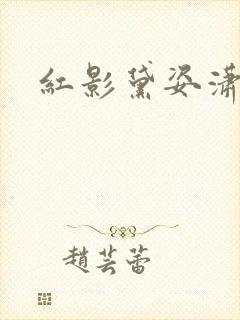 紅影黛姿瀟
趙芸蕾